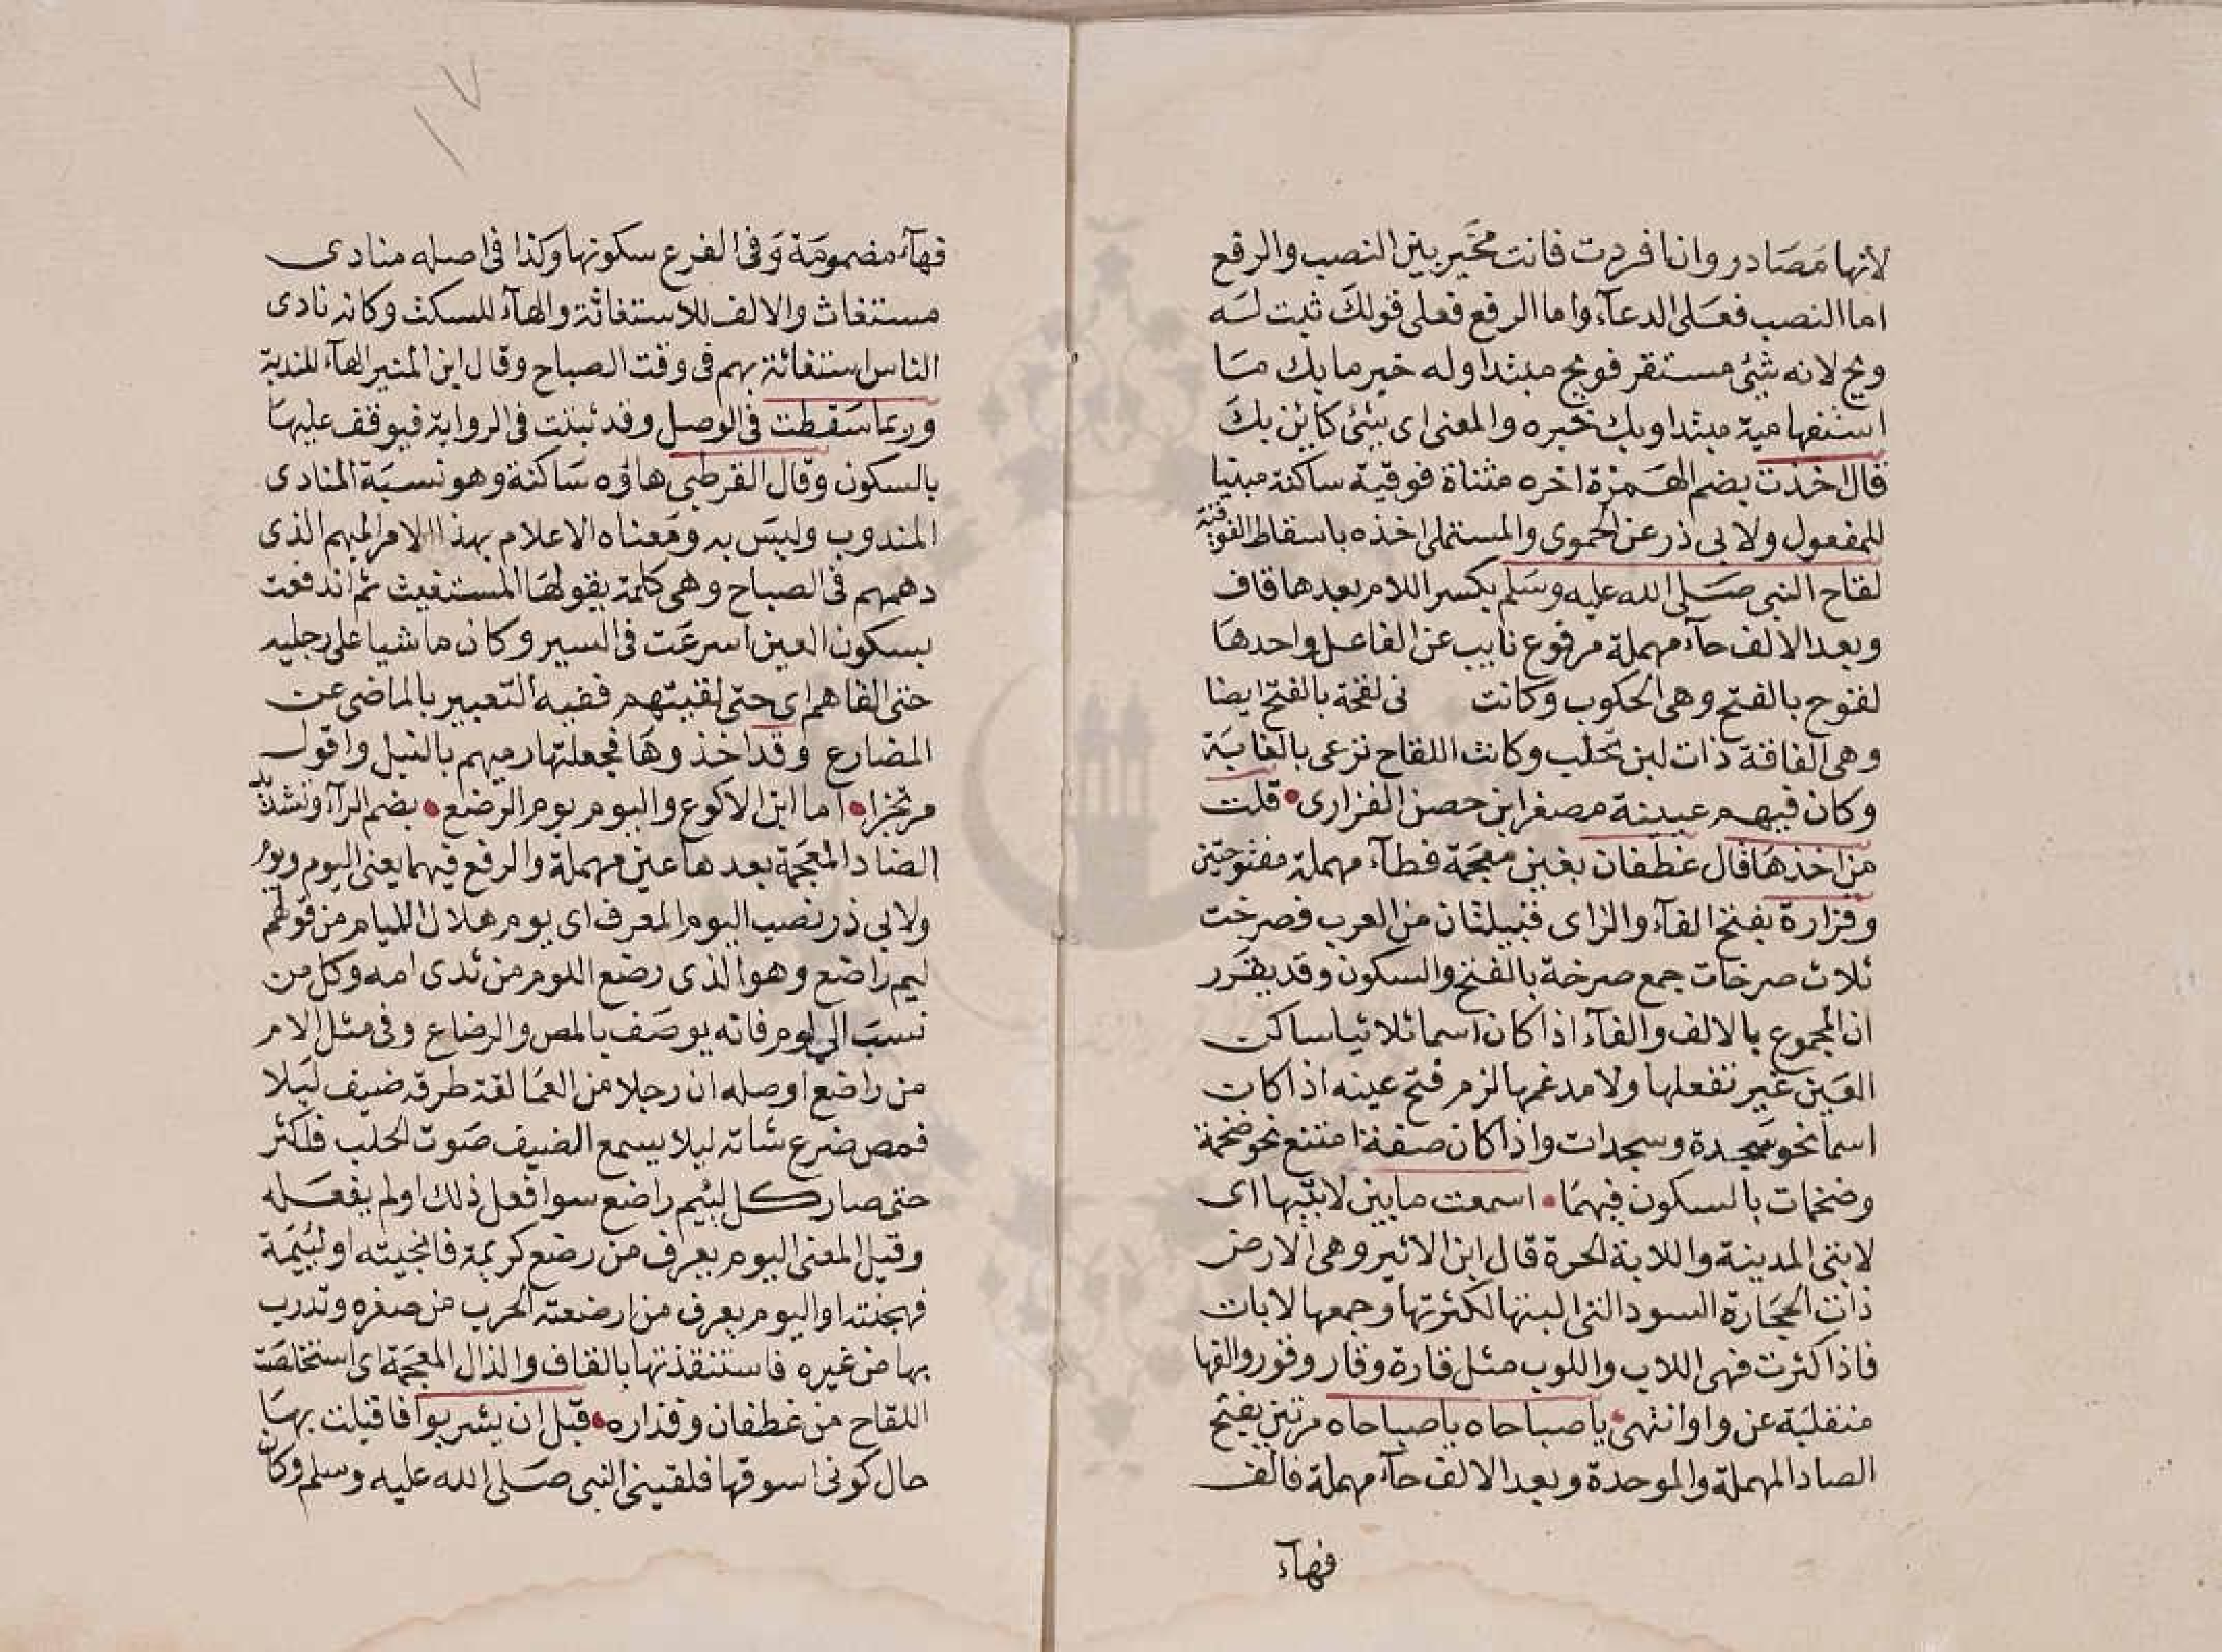 لانها مصادر وان افردت فانت مخير بين النصب والرفع
اما النصب فعلى الدعآء واما الرفع فعلى قولك ثبت له
ويح لانه شئ مستقر فويح مبتدا وله خبر ما بك ما
استفهامية مبتدا وبك خبره والمعنى اى شئ كائن بك
قال اخذت بضم الهمزة اخره مثناة فوقية ساكنة مبنيا
للمفعول ولابى ذر عن الحموى والمستملى اخذه باسقاط الفوقية
لقاح النبى صلى الله عليه وسلم بكسر اللام بعدها قاف
وبعد الالف حآء مهملة مرفوع نايب عن الفاعل واحدها
لقوح بالفتح وهى الحلوب وكانت فى لقحة بالفتح ايضا
وهى الناقة ذات لبن تحلب وكانت اللقاح ترعى بالغابة
وكان فيهم عيينة مصغر ابن حصن الفزارى قلت
من اخذها قال غطفان بغين معجمة فطآء مهملة مفتوحتين
وفزارة بفتح الفآء والزاى قبيلتان من العرب فصرخت
ثلاث صرخات جمع صرخة بالفتح والسكون وقد يقرر
ان المجموع بالالف والفآء اذا كان اسما ثلاثيا ساكن
العين غير نفعلها ولا مدغمها لزم فتح عينه اذا كات
اسما نحو سجدة وسجدات واذا كان صفة امتنع نحو ضخمة
وضخمات بالسكون فيهما اسمعت ما بين لابتيها اى
لابتى المدينة واللابة الحرة قال ابن الاثير وهى الارض
ذات الحجارة السود التى البنتها لكثرتها وجمعها لابات
فاذا كثرت فهى اللاب واللوب مثل قارة وقار وقور والفها
منقلبة عن واو انتهى يا صباحاه يا صباحاه مرتين بفتح
الصاد المهملة والموحدة وبعد الالف حآء مهملة فالف
فهآء
فهآء مضمومة وفى الفرع سكونها وكذا فى اصله منادى
مستغاث والالف للاستغاثة والهآء للسكت وكانه نادى
الناس استغاثة بهم فى وقت الصباح وقال ابن المنير الهآء للندبة
وربما سقطت فى الوصل وقد ثبتت فى الرواية فيوقف عليها
بالسكون وقال القرطبى هاؤه ساكنة وهو نسبة المنادى
المندوب وليس به ومعناه الاعلام بهذا الامر المبهم الذى
دهمهم فى الصباح وهى كلمة يقولها المستغيث ثم اندفعت
بسكون العين اسرعت فى السير وكان ماشيا على رجليه
حتى القاهم اى حتى لقيتهم ففيه التعبير بالماضى عن
المضارع وقد اخذوها فجعلت ارميهم بالنبل واقول
مرتجزا اما ابن الاكوع واليوم يوم الرضع بضم الرآء وتشديد
الضاد المعجمة بعدها عين مهملة والرفع فيهما يعنى اليوم ويوم
ولابى ذر نصب اليوم المعرف اى يوم هلاك الليام من قولهم
ليم راضع وهو الذى رضع اللوم من ثدى امه وكل من
نسب الى لوم فانه يوصف بالمص والرضاع وفى مثل الامر
من راضع اوصله ان رجلا من العمالقة طرقه ضيف ليلا
فمص ضرع شاته ليلا يسمع الضيف صوت الحلب فكثر
حتى صار كل لئيم راضع سوا فعل ذلك او لم يفعله
وقيل المعنى اليوم يعرف من رضع كريمة فانجبته او لئيمة
فهجنته او اليوم يعرف من ارضعته الحرب من صغره وتدرب
بها من غيره فاستنقذتها بالقاف والذال المعجمة اى استخلصت
اللقاح من غطفان وفزاره قبل ان يشربوا فاقبلت بها
حال كونى اسوقها فلقينى النبى صلى الله عليه وسلم وكان